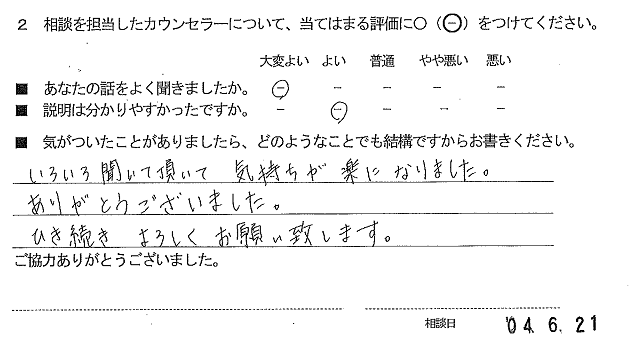 2 相談を担当したカウンセラーについて、当てはまる評価に○（⊖）をつけてください。
大変よい よい 普通 やや悪い 悪い
■ あなたの話をよく聞きましたか。 ⊖ － － － －
■ 説明は分かりやすかったですか。 － ⊖ － － －
■ 気がついたことがありましたら、どのようなことでも結構ですからお書きください。
いろいろ聞いて頂いて 気持ちが 楽に なりました。
ありがとうございました。
ひき続き よろしく お願い致します。
ご協力ありがとうございました。
相談日 '04. 6. 21